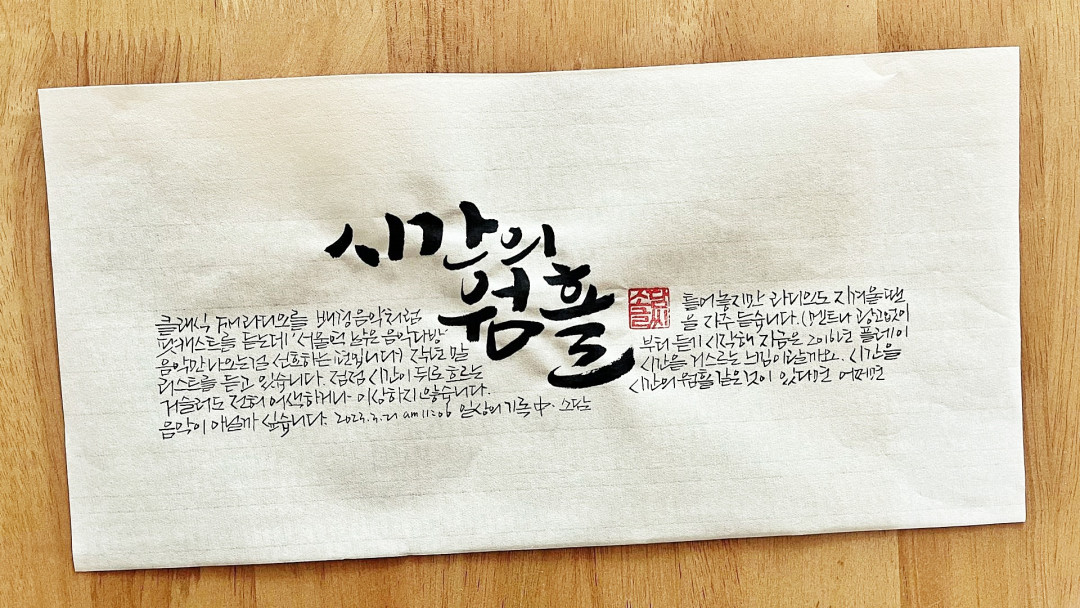 시간의
웜홀
소담
글씨
클래식 FM 라디오를 배경음악처럼 틀어놓지만 라디오도 지겨울땐
팟캐스트를 듣는데 낡은 음악다방 을 자주 듣습니다. (멘트나 광고없이
음악만 나오는걸 선호하는 편입니다) 작년 말 부터 듣기 시작해 지금은 2016년 플레이
리스트를 듣고 있습니다. 점점 시간이 뒤로 흐르는 시간을 거스르는 느낌이랄까요. 시간을
거슬러도 전혀 어색하거나 이상하지 않습니다. 시간의 웜홀 같은것이 있다면 어쩌면
음악이 아닐까 싶습니다. 2023.3.21 am 11:06 일상의기록 中. 소담